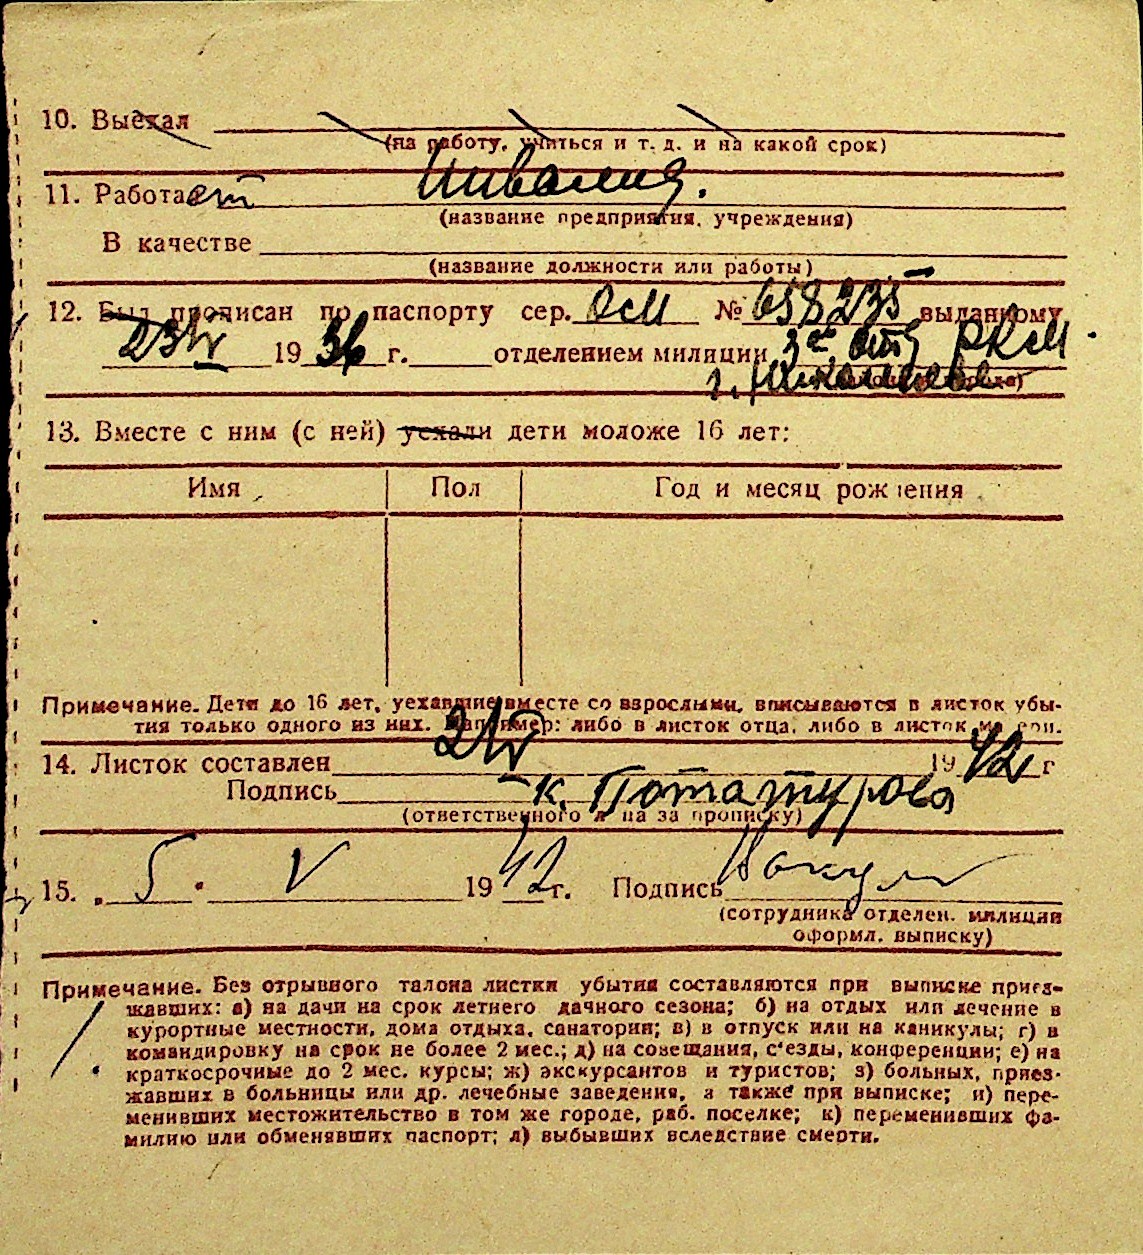 10. Выехал
(на работу, учиться и т. д. и на какой срок)
11. Работает Инвалид.
(название предприятия, учреждения)
В качестве
(название должности или работы)
12. Был прописан по паспорту сер. ОсМ № 658235 выданному
23/V 1936 г. отделением милиции 3е отд РКМ.
г. Николаева
13. Вместе с ним (с ней) уехали дети моложе 16 лет:
Имя Пол Год и месяц рождения
Примечание. Дети до 16 лет, уехавшие вместе со взрослыми, вписываются в листок убы-
тия только одного из них. Например: либо в листок отца, либо в листок матери.
14. Листок составлен 2/V 1942 г
Подпись К. Потатурова
(ответственного лица за прописку)
15. „5" V 1942 г. Подпись
(сотрудника отделен. милиции
оформл. выписку)
Примечание. Без отрывного талона листки убытия составляются при выписке приез-
жавших: а) на дачи на срок летнего дачного сезона; б) на отдых или лечение в
курортные местности, дома отдыха, санатории; в) в отпуск или на каникулы; г) в
командировку на срок не более 2 мес.; д) на совещания, с'езды, конференции; е) на
краткосрочные до 2 мес. курсы; ж) экскурсантов и туристов; з) больных, приез-
жавших в больницы или др. лечебные заведения, а также при выписке; и) пере-
менивших местожительство в том же городе, раб. поселке; к) переменивших фа-
милию или обменявших паспорт; л) выбывших вследствие смерти.